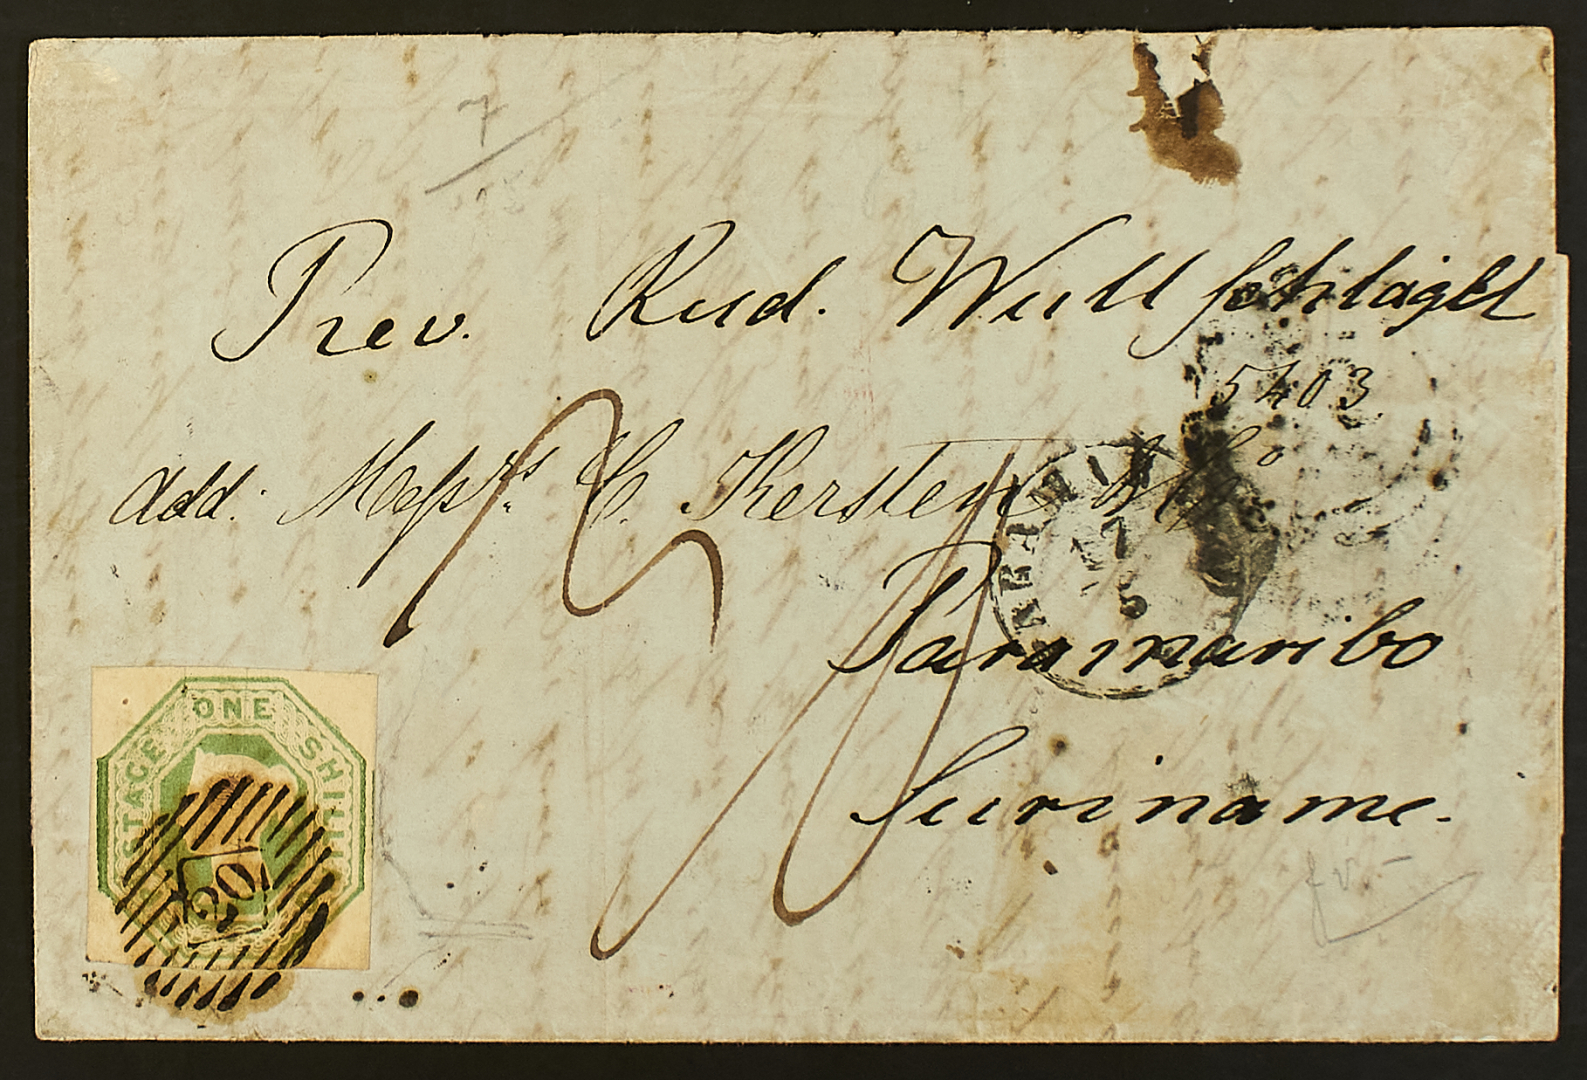 7
Rev. Rud. Wullschlägel
5403
Add. Messrs. C. Kersten & Co
Paramaribo
Suriname.
POSTAGE ONE SHILLING
20